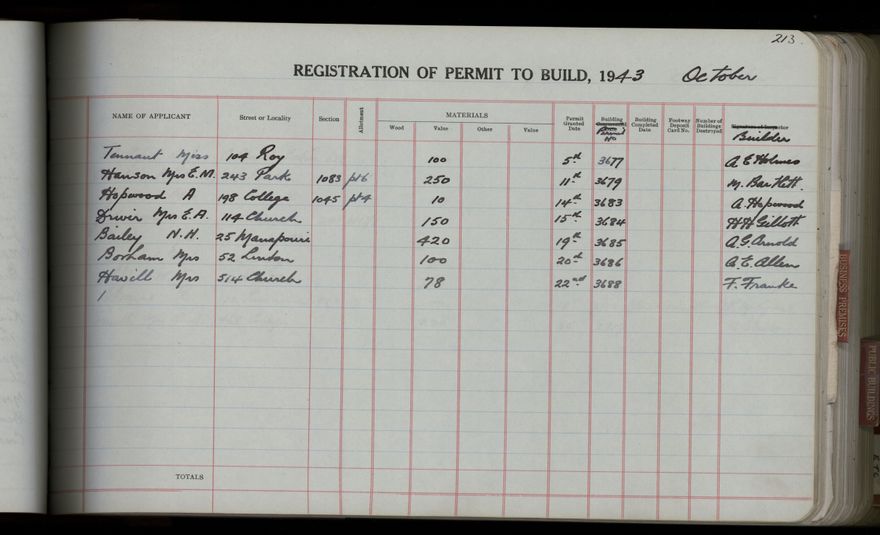 213.
REGISTRATION OF PERMIT TO BUILD, 1943 October
NAME OF APPLICANT Street or Locality Section Allotment MATERIALS Permit Granted Date Building Permit No Building Completed Date Footway Deposit Card No. Number of Buildings Destroyed Builder
Wood Value Other Value
Tennant Miss 104 Roy 100 5th 3677 A E Holmes
Hanson Mrs E.M. 243 Park 1083 pt6 250 11th 3679 M. Bartlett.
Hopwood A 198 College 1045 pt4 10 14th 3683 A. Hopwood
Driver Mrs E.A. 114 Church 150 15th 3684 H H Gilloth
Bailey N.H. 25 Manapouri 420 19th 3685 A.G. Arnold
Borham Mrs 52 Linton 100 20th 3686 A.E. Allen
Havill Mrs 514 Church 78 22nd 3688 F. Franke
TOTALS
BUSINESS PREMISES
PUBLIC BUILDINGS